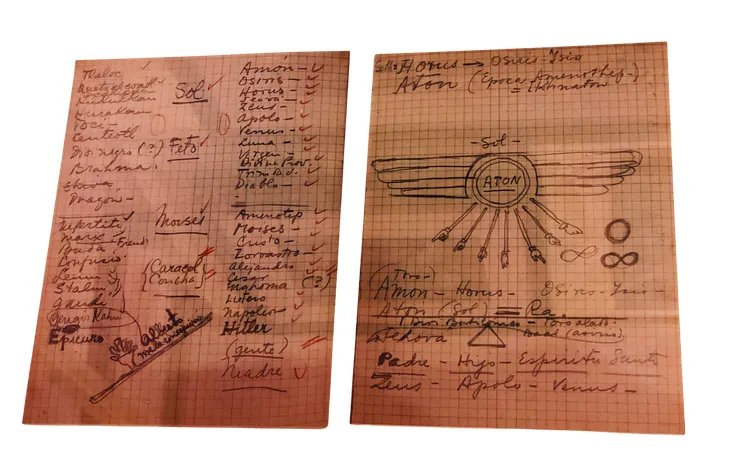 Tlaloc
Quetzalcoatl
Kukulkan
Hurakan
Centeotl
Dios negro (?)
Brahma
Shiva
Dragon
Nefertiti
Marx
Freud
Buda
Confucio
Lenin
Stalin
Gengis Kahn
Epicuro
Sol
Feto
Moises
(Caracol
Concha)
Amón -
Osiris -
Horus -
Zeus -
Apolo -
Venus -
Luna -
Virgen -
Prov.
Trinid. -
Diablo -
Amenotep -
Moises -
Cristo -
Zoroastro -
Alejandro -
Cesar
(?)
Lutero -
Napoleon -
Hitler
(gente)
Madre
Horus → Osiris - Isis
Aton (Epoca Amenothep -
= Iknaton
- Sol -
ATON
∞
(Toro -)
Amon - Horus - Osiris - Isis -
Aton (Sol) = Ra.
Toro alado.
Jehova
Padre - Hijo - Espiritu Santo
Zeus - Apolo - Venus -